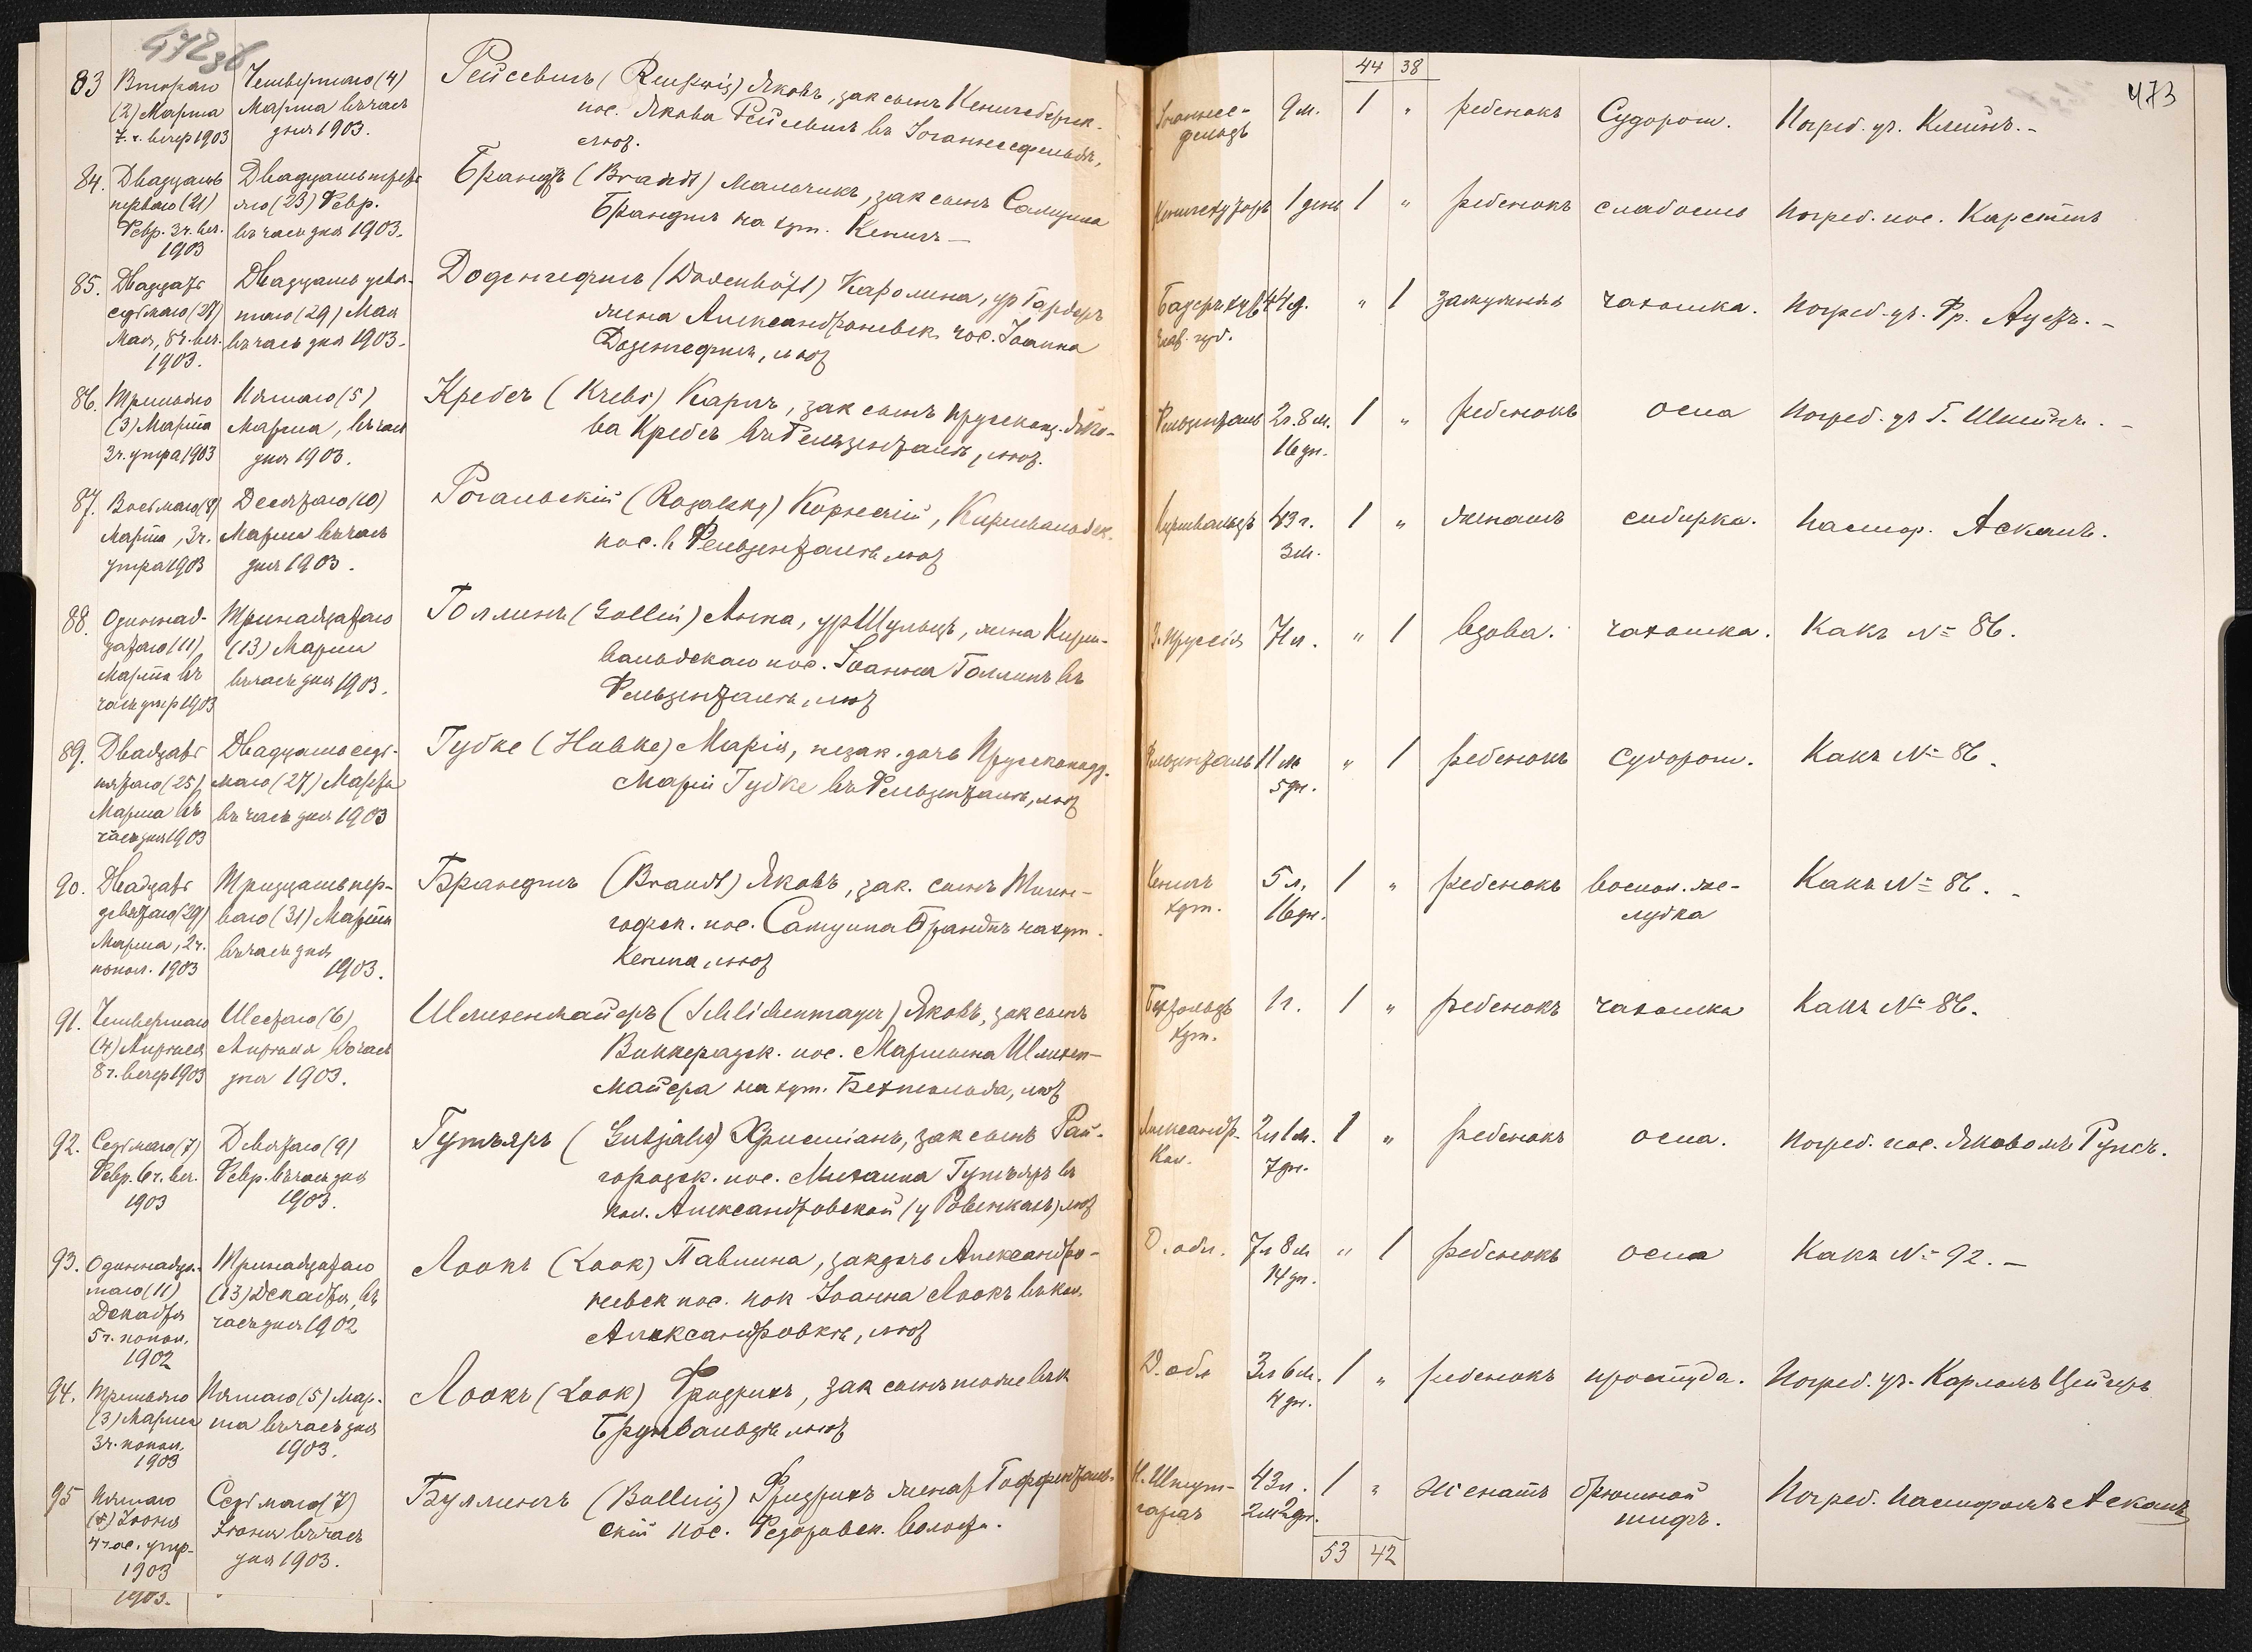 472 зв
83 Второго Четвертаго (4) Рейсевитъ (Reuswig) Яковъ, зак сынъ Кенигсбергск.
(2) Марта Марта въ часъ пос. Якова Рейсевитъ въ Іоганнесфельдѣ,
7. ч. вечер 1903 дня 1903. лют.
84. Двадцать Двадцать треть- Брандтъ (Brandt) мальчикъ, зак сынъ Самуила
перваго (21) яго (23) Февр. Брандтъ на хут. Кенигъ —
Февр. 3 ч. веч. въ часъ дня 1903.
1903
85. Двадцать Двадцать девя- Доденгефтъ (Dodenhöft) Каролина, ур Гардеръ
седьмаго (27) таго (29) Мая жена Александроневск. пос. Іоанна
Мая, 8 ч. веч. въ часъ дня 1903. Доденгефтъ, лют
1903.
86. Третьяго Пятаго (5) Кребсъ (Krebs) Карлъ, зак сынъ прусскопод. Яко-
(3) Марта Марта, въ часъ ва Кребсъ въ Фельзенталѣ, лют.
3 ч. утра 1903 дня 1903.
87. Восьмаго (8) Десятаго (10) Рогальскій (Rogalsky) Корнелій, Киршвальдск.
Марта, 3 ч. Марта въ часъ пос. въ Фельзенталѣ лют
утра 1903 дня 1903.
88. Одиннад- Тринадцатаго Голлинъ (Gollin) Анна, ур Шульцъ, жена Кирш-
цатаго (11) (13) Марта вальдскаго пос. Іоанна Голлинъ въ
Марта въ въ часъ дня 1903. Фельзенталѣ, лют
часъ утр 1903
89. Двадцать Двадцать седь- Губке (Hubke) Марія, незак. дочь Прусскопод.
пятаго (25) маго (27) Марта Маріи Губке въ Фельзенталѣ, лют
Марта въ въ часъ дня 1903
часъ дня 1903
90. Двадцать Тридцать пер- Брандтъ (Brandt) Яковъ, зак. сынъ Тиген-
девятаго (29) ваго (31) Марта гофск. пос. Самуила Брандтъ на хут.
Марта, 2 ч. въ часъ дня Кенига, лют
попол. 1903 1903.
91. Четвертаго Шестаго (6) Шлихенмайеръ (Schlichenmayer) Яковъ, зак сынъ
(4) Апрѣля Апрѣля въ часъ Виккерадск. пос. Мартына Шлихен-
8 ч. вечер 1903 дня 1903. майера на хут. Бехтольда, лют
92. Седьмаго (7) Девятаго (9) Гутъяръ (Gutjahr) Христіанъ, зак сынъ Рай-
Февр. 6 ч. веч. Февр. въ часъ дня городск. пос. Михаила Гутъяръ въ
1903 1903. кол. Александровской (у Ровенькахъ) лют
93. Одиннадца- Тринадцатаго Лоокъ (Look) Павлина, зак дочь Александро-
таго (11) (13) Декабря, въ невск пос. пок Іоанна Лоокъ въ кол.
Декабря часъ дня 1902 Александровкѣ, лют
5 ч. попол.
1902
94. Третьяго Пятаго (5) Мар- Лоокъ (Look) Фридрихъ, зак сынъ
(3) Марта та въ часъ дня Грунвальдѣ лют
3 ч. попол. 1903.
1903
95 Пятаго Седьмаго (7) Буллингъ (Bulling) Фридрихъ женат Гоффенталь-
(5) Іюня Іюня въ часъ скій пос. Федоровск. волости.
4 час. утр- дня 1903.
1903
1903.
44 38
473
Іоаннес- 9 м. 1 " ребенокъ Судорог. Погреб. уч. Клейнъ. —
фельдъ
1 день 1 " ребенокъ слабость Погреб. пос. Карстенъ
44 г. " 1 замужняя чахотка. Погреб. уч. Фр.
Тав. губ.
Фельзенталь 2 г. 8 м. 1 " ребенокъ оспа Погреб. уч Г. —
16 дн.
Киршвальдъ 43 г. 1 " женатъ сибирка. Пастор. Асканъ.
3 м.
З. Пруссія 71 л. " 1 вдова. чахотка. Какъ № 86.
Фельзенталь 11 м " 1 ребенокъ Судорог. Какъ № 86.
5 дн.
Кенигъ 5 л, 1 " ребенокъ воспал. же- Какъ № 86. —
хут. 16 дн. лудка
Бехтольдъ 1 г. 1 " ребенокъ чахотка Какъ № 86.
хут.
Александр. 2 л 1 м. 1 " ребенокъ оспа. Погреб. пос. Яковомъ
Кол. 7 дн.
Д. обл. 7 л 8 м " 1 ребенокъ оспа Какъ № 92. —
14 дн.
Д. обл 3 л 6 м. 1 " ребенокъ простуда. Погреб. уч. Карломъ Цейгеръ
4 дн.
Н. Штут- 43 л. 1 " Женатъ брюшной Погреб. Пасторомъ Асканъ
гартъ 2 м 2 дн. тифъ.
53 42